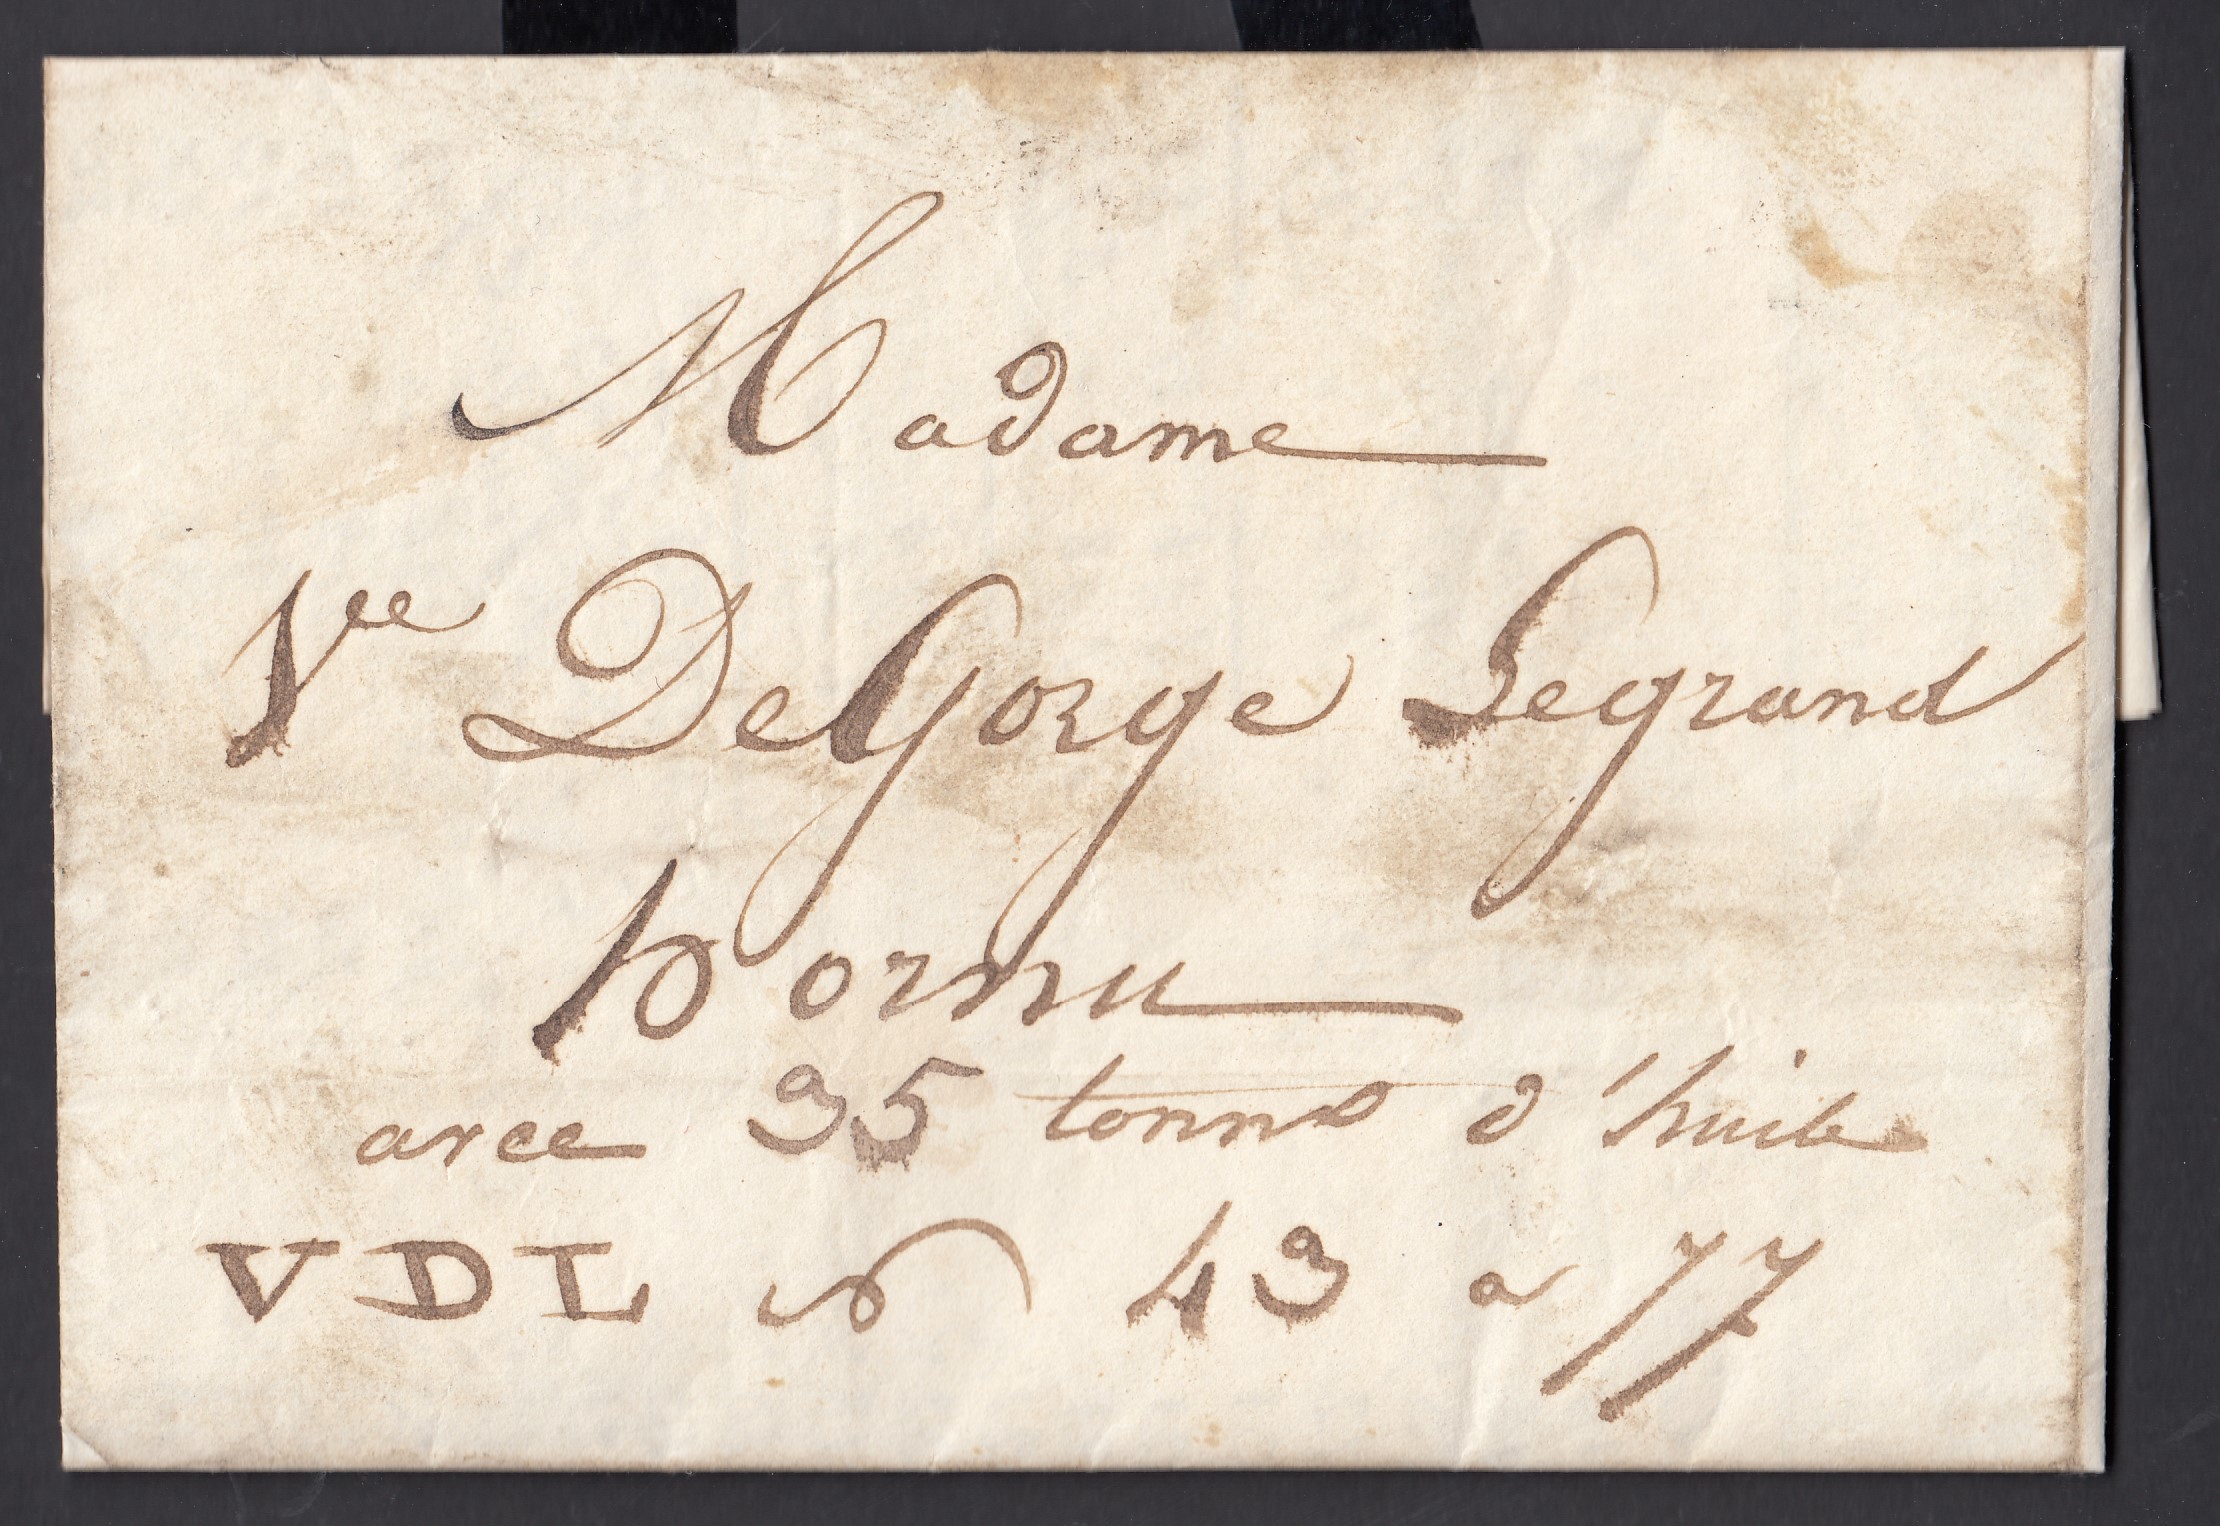 Madame
Vve DeGorge Legrand
hornu
avec 35 tonnes d'huile
VDL n 43 a 77